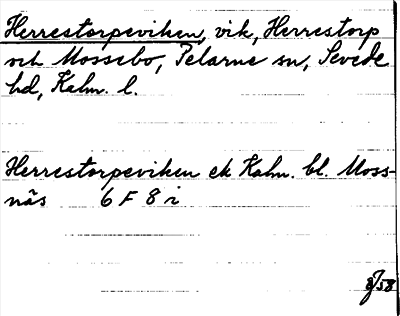 Herrestorpeviken, vik, Herrestorp
och Mossebo, Pelarne sn, Sevede
hd, Kalm. l.
Herrestorpeviken ek Kalm. bl. Moss-
näs 6 F 8 i